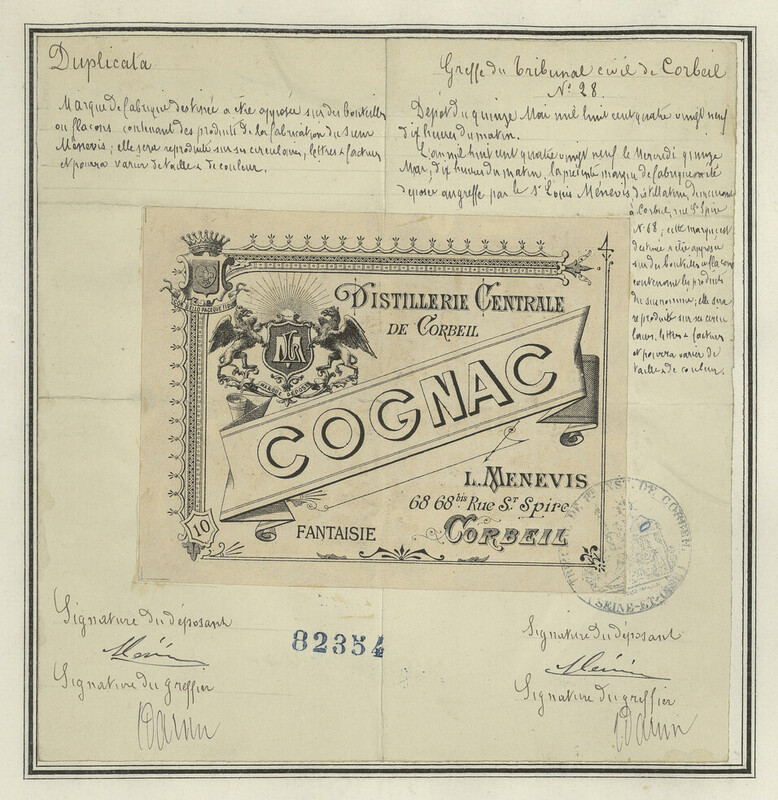 Duplicata
Marque de fabrique destinée a être apposée sur des bouteilles
ou flacons contenant des produits de la fabrication du sieur
Ménevis ; elle sera reproduite sur ses circulaires, lettres & factures
et pourra varier de taille & de couleur.
Greffe du tribunal civil de Corbeil
N° 28.
Dépôt du quinze Mai mil huit cent quatre vingt neuf
dix heures du matin.
L'an mil huit cent quatre vingt neuf le Mercredi quinze
Mai, dix heures du matin, la présente marque de fabrique a été
déposée au greffe par le Sr Louis Ménevis distillateur, demeurant
à Corbeil, rue St Spire
N° 68 ; cette marque est
destinée a être apposée
sur des bouteilles & flacons
contenant les produits
du susnommé ; elle sera
reproduite sur ses circu
laires, lettres & factures
et pourra varier de
taille & de couleur.
DISTILLERIE CENTRALE
DE CORBEIL
MARQUE DEPOSÉE
COGNAC
L. MENEVIS
68 68 bis Rue St Spire
CORBEIL
10
FANTAISIE
SEINE-ET-OISE
Signature du déposant
Signature du greffier
82354
Signature du déposant
Signature du greffier